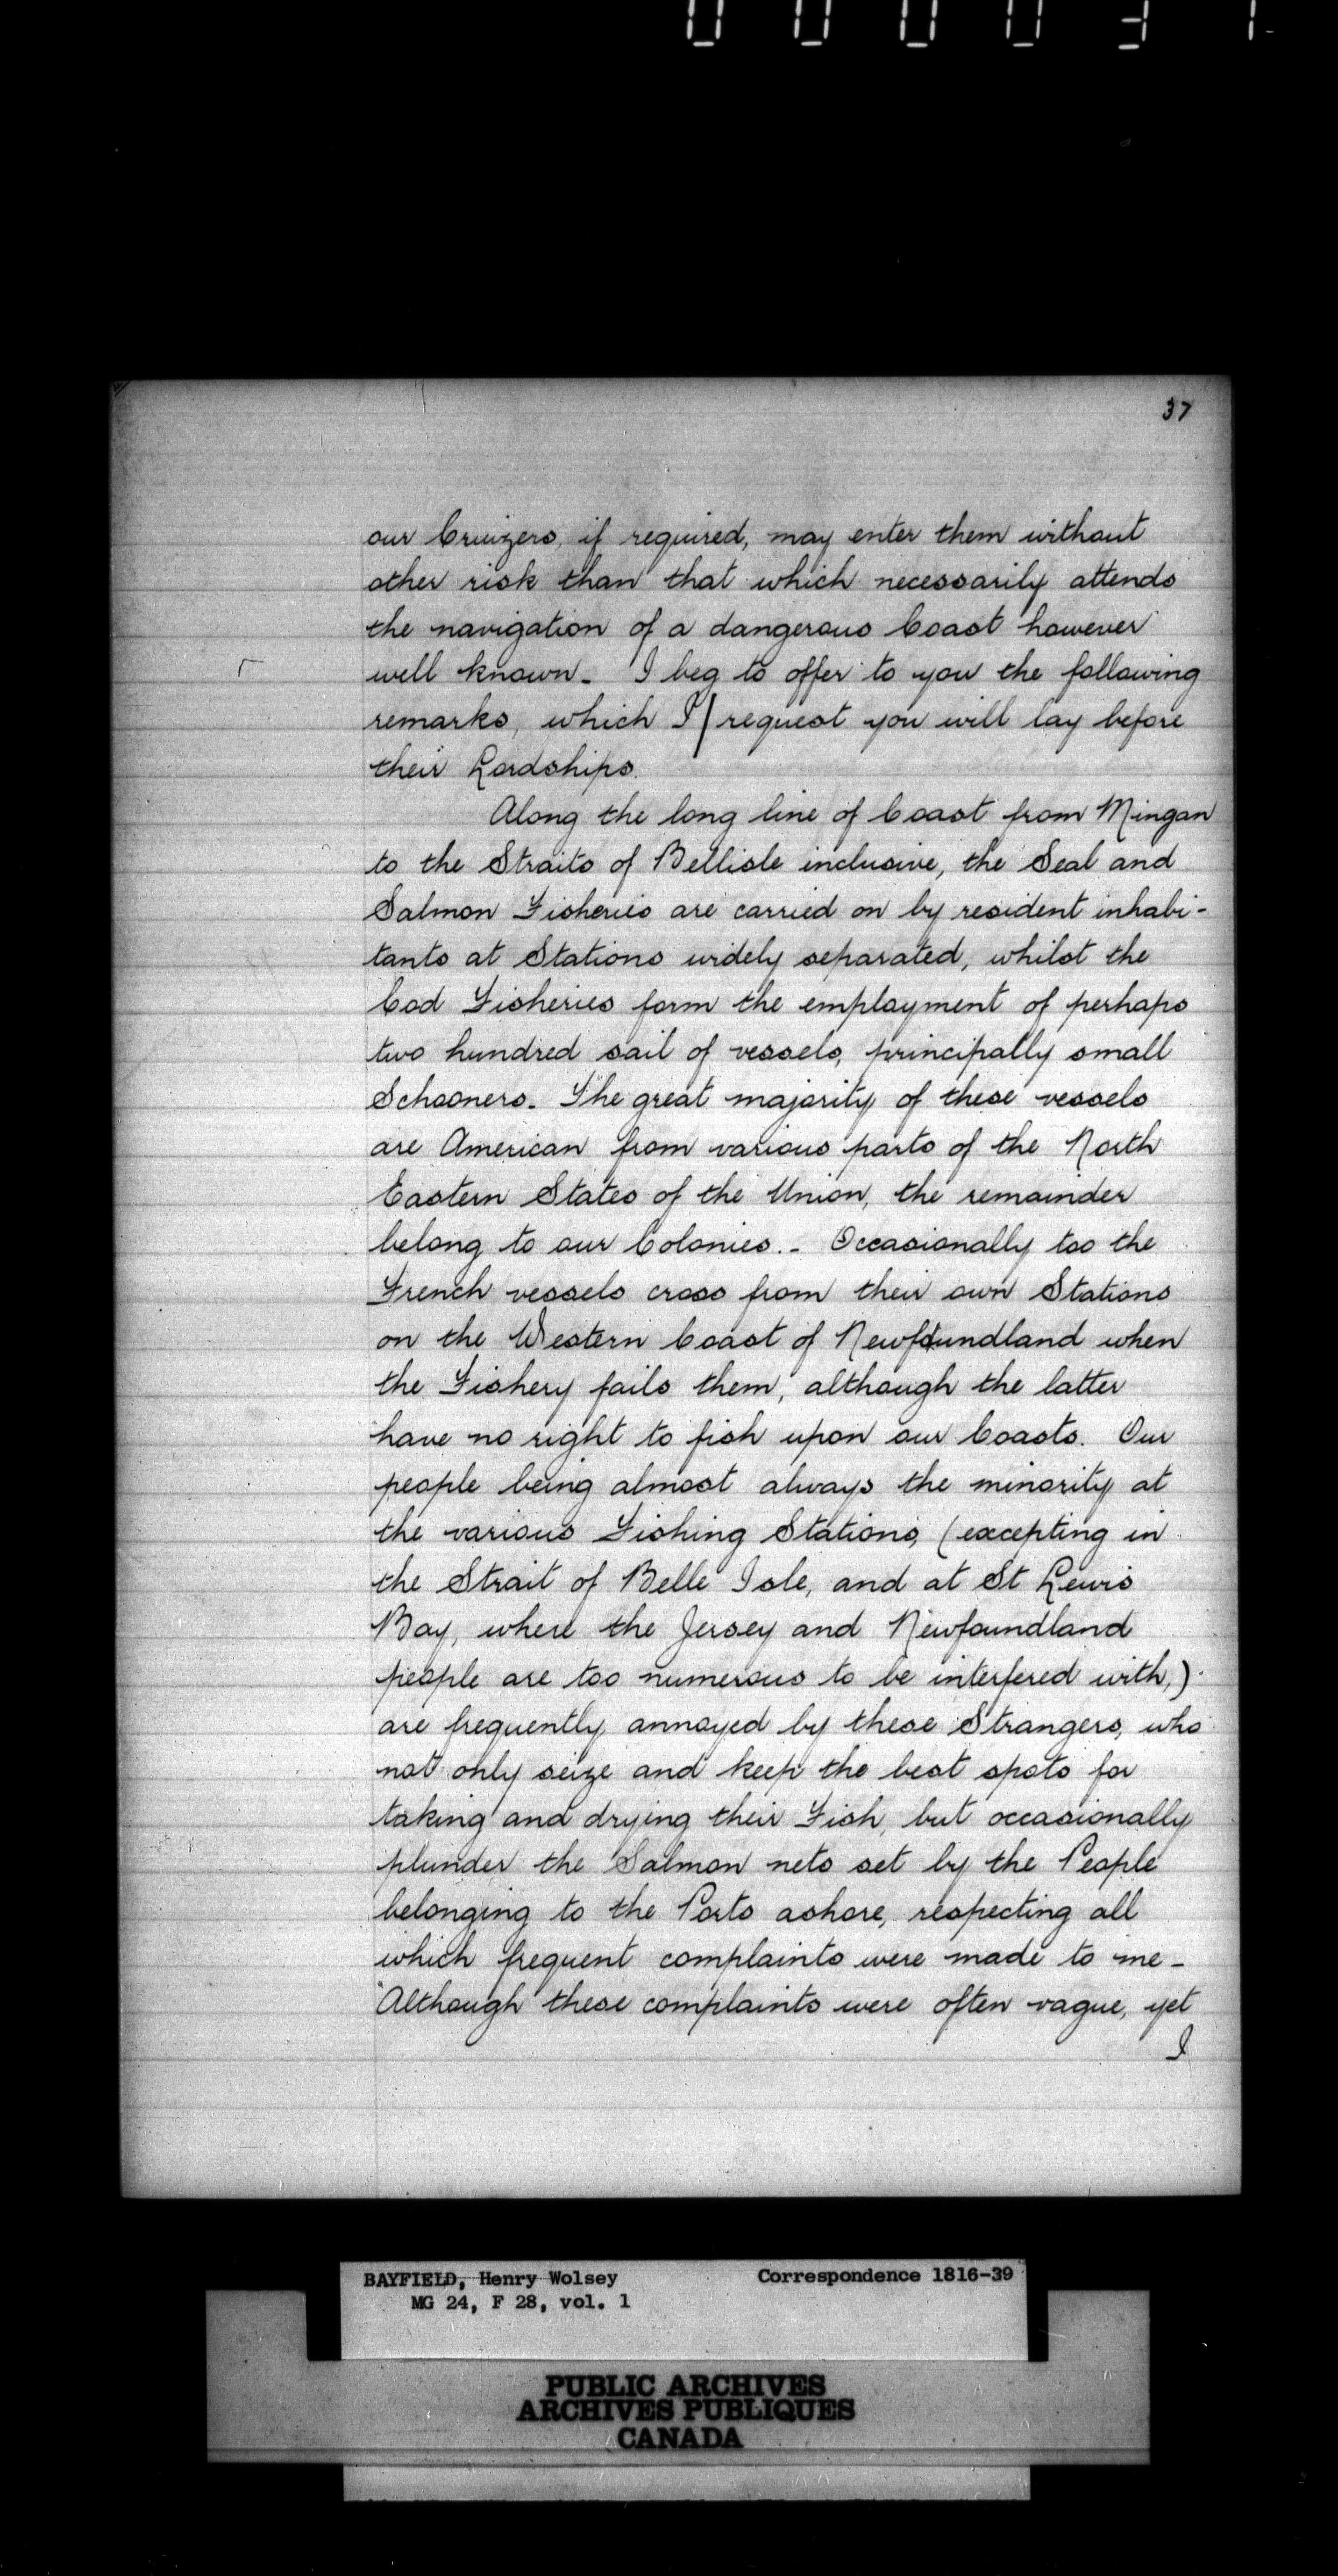 000037
37
our Cruizers, if required, may enter them without
other risk than that which necessarily attends
the navigation of a dangerous Coast however
well known - I beg to offer to you the following
remarks, which I / request you will lay before
their Lordships.
Along the long line of Coast from Mingan
to the Straits of Bellisle inclusive, the Seal and
Salmon Fisheries are carried on by resident inhabi-
tants at Stations widely separated, whilst the
Cod Fisheries form the employment of perhaps
two hundred sail of vessels, principally small
Schooners - The great majority of these vessels
are American from various parts of the North
Eastern States of the Union, the remainder
belong to our Colonies. - Occasionally too the
French vessels cross from their own Stations
on the Western Coast of Newfoundland when
the Fishery fails them, although the latter
have no right to fish upon our Coasts. Our
people being almost always the minority at
the various Fishing Stations, (excepting in
the Strait of Belle Isle, and at St Lewis
Bay, where the Jersey and Newfoundland
people are too numerous to be interfered with,)
are frequently annoyed by these Strangers, who
not only seize and keep the best spots for
taking and drying their Fish, but occasionally
plunder the Salmon nets set by the People
belonging to the Posts ashore, respecting all
which frequent complaints were made to me -
Although these complaints were often vague, yet
I
BAYFIELD, Henry Wolsey Correspondence 1816-39
MG 24, F 28, vol. 1
PUBLIC ARCHIVES
ARCHIVES PUBLIQUES
CANADA